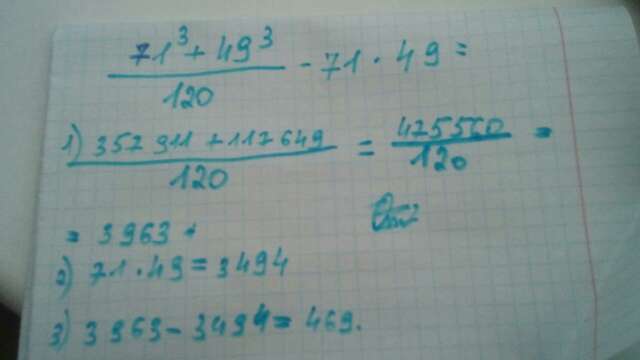 71³ + 49³
120
- 71 · 49 =
1) 357 911 + 117 649
120
= 475560
120
=
= 3963
2) 71 · 49 = 3494
3) 3963 - 3494 = 469.